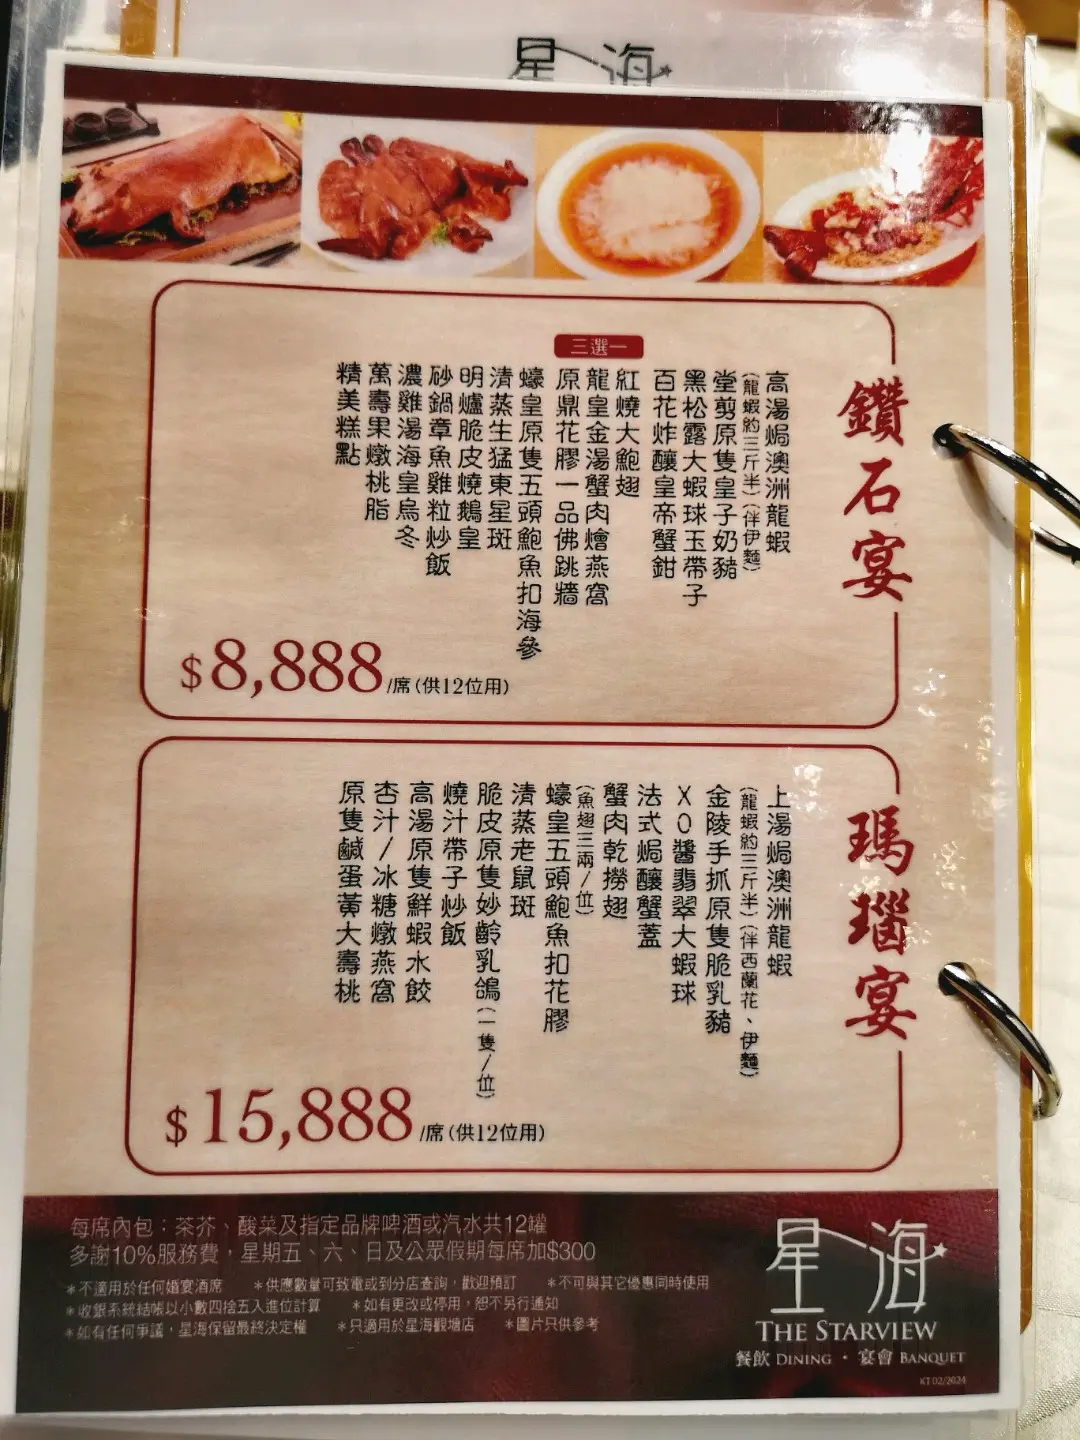 星海
鑽石宴
高湯焗澳洲龍蝦
(龍蝦約三斤半)(伴伊麵)
堂剪原隻皇子奶豬
黑松露大蝦球玉帶子
百花炸釀皇帝蟹鉗
三選一
紅燒大鮑翅
龍皇金湯蟹肉燴燕窩
原鼎花膠一品佛跳牆
蠔皇原隻五頭鮑魚扣海參
清蒸生猛東星斑
明爐脆皮燒鵝皇
砂鍋章魚雞粒炒飯
濃雞湯海皇烏冬
萬壽果燉桃脂
精美糕點
$8,888/席(供12位用)
瑪瑙宴
上湯焗澳洲龍蝦
(龍蝦約三斤半)(伴西蘭花、伊麵)
金陵手抓原隻脆乳豬
XO醬翡翠大蝦球
法式焗釀蟹蓋
蟹肉乾撈翅
(魚翅三兩/位)
蠔皇五頭鮑魚扣花膠
清蒸老鼠斑
脆皮原隻妙齡乳鴿(一隻/位)
燒汁帶子炒飯
高湯原隻鮮蝦水餃
杏汁/冰糖燉燕窩
原隻鹹蛋黃大壽桃
$15,888/席(供12位用)
每席內包：茶芥、酸菜及指定品牌啤酒或汽水共12罐
多謝10%服務費，星期五、六、日及公眾假期每席加$300
*不適用於任何婚宴酒席 *供應數量可致電或到分店查詢，歡迎預訂 *不可與其它優惠同時使用
*收銀系統結帳以小數四捨五入進位計算 *如有更改或停用，恕不另行通知
*如有任何爭議，星海保留最終決定權 *只適用於星海觀塘店 *圖片只供參考
星海
THE STARVIEW
餐飲 DINING · 宴會 BANQUET
KT 02/2024